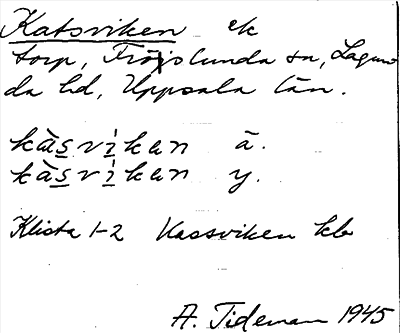 Katsviken ek
torp, Fröslunda sn, Lagun-
da hd, Uppsala län.
kàsvìken ä.
kàsvìken y.
Klista 1-2 Kassviken kb
A. Tideman 1945